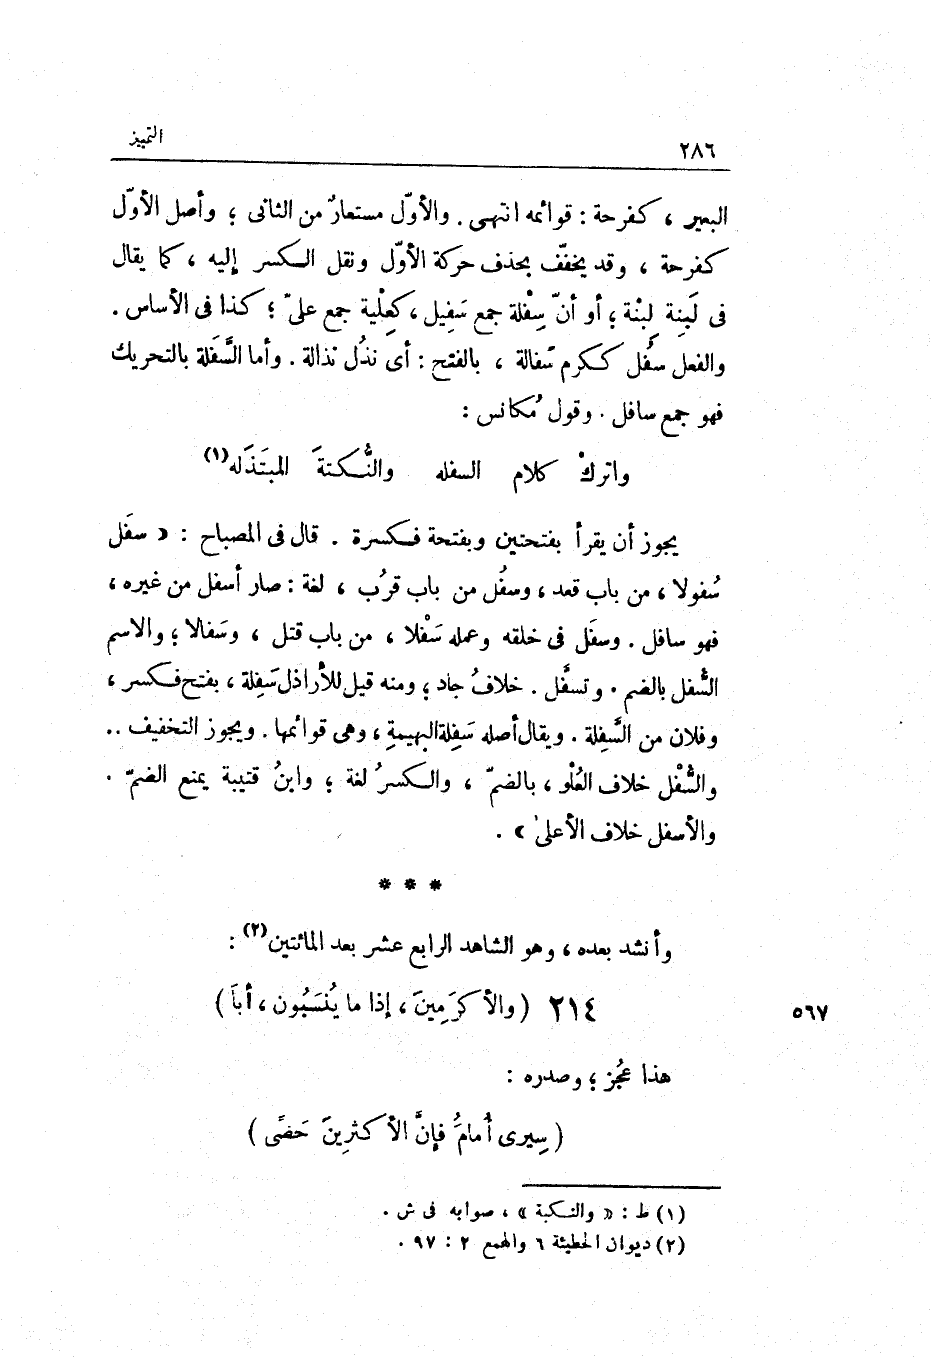 ٢٨٦
التمييز
البعير ، كفرحة : قوائمه انتهى . والأوّل مستعارٌ من الثانى ؛ وأصل الأوّل
كفرحة ، وقد يخفّف بحذف حركة الأوّل ونقل الكسر إليه ، كما يقال
فى لَبِنة لِبْنة ؛ أو أنّ سِفْلة جمع سَفِيل ، كعِلْية جمع علىّ ؛ كذا فى الأساس .
والفعل سفُل ككرم سَفالة ، بالفتح : أى نذُل نذالة . وأما السَّفَلة بالتحريك
فهو جمع سافل . وقول مُكانس :
واتركْ كلام السفله والنُّكتةَ المبتَذَله(١)
يجوز أن يقرأ بفتحتين وبفتحة فكسرة . قال فى المصباح : « سفَل
سُفولا ، من باب قعد ، وسفُل من باب قرُب ، لغة : صار أسفل من غيره ،
فهو سافل . وسفَل فى خلقه وعمله سَفْلا ، من باب قتل ، وسَفالا ؛ والاسم
السُّفل بالضم . وتسفَّل . خلافُ جاد ؛ ومنه قيل للأراذل سَفِلة ، بفتح فكسر ،
وفلان من السَّفِلة . ويقال أصله سَفِلة البهيمةِ ، وهى قوائمها . ويجوز التخفيف ..
والسُّفْل خلاف العُلْو ، بالضمّ ، والكسرُ لغة ؛ وابنُ قتيبة يمنع الضمّ .
والأسفل خلاف الأعلى » .
* * *
وأنشد بعده ، وهو الشاهد الرابع عشر بعد المائتين(٢) :
٢١٤ ( والأكرَمِينَ ، إذا ما يُنسَبُون ، أبَا )
٥٦٧
هذا عجُز ؛ وصدره :
( سِيرى أُمامُ فإنَّ الأكثرِينَ حَصًى )
(١) ط : « والنكبة » ، صوابه فى ش .
(٢) ديوان الحطيئة ٦ والهمع ٢ : ٩٧ .